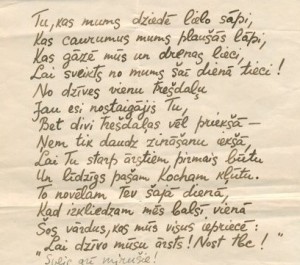 Tu, kas mums dziedē lielo sāpi,
Kas caurumus mums plaušās lāpi,
Kas gāzē mūs un drenas lieci,
Lai sveikts no mums šai dienā tieci!
No dzīves vienu trešdaļu
Jau esi nostaigājis Tu,
Bet divi trešdaļas vēl priekšā —
Ņem tik daudz zināšanu iekšā,
Lai Tu starp ārstiem pirmais būtu
Un līdzīgs pašam Kocham kļūtu.
To novēlam Tev šajā dienā,
Kad izkliedzam mēs balsī vienā
Šos vārdus, kas mūs visus iepriecē:
"Lai dzīvo mūsu ārsts! Nost tbc!"